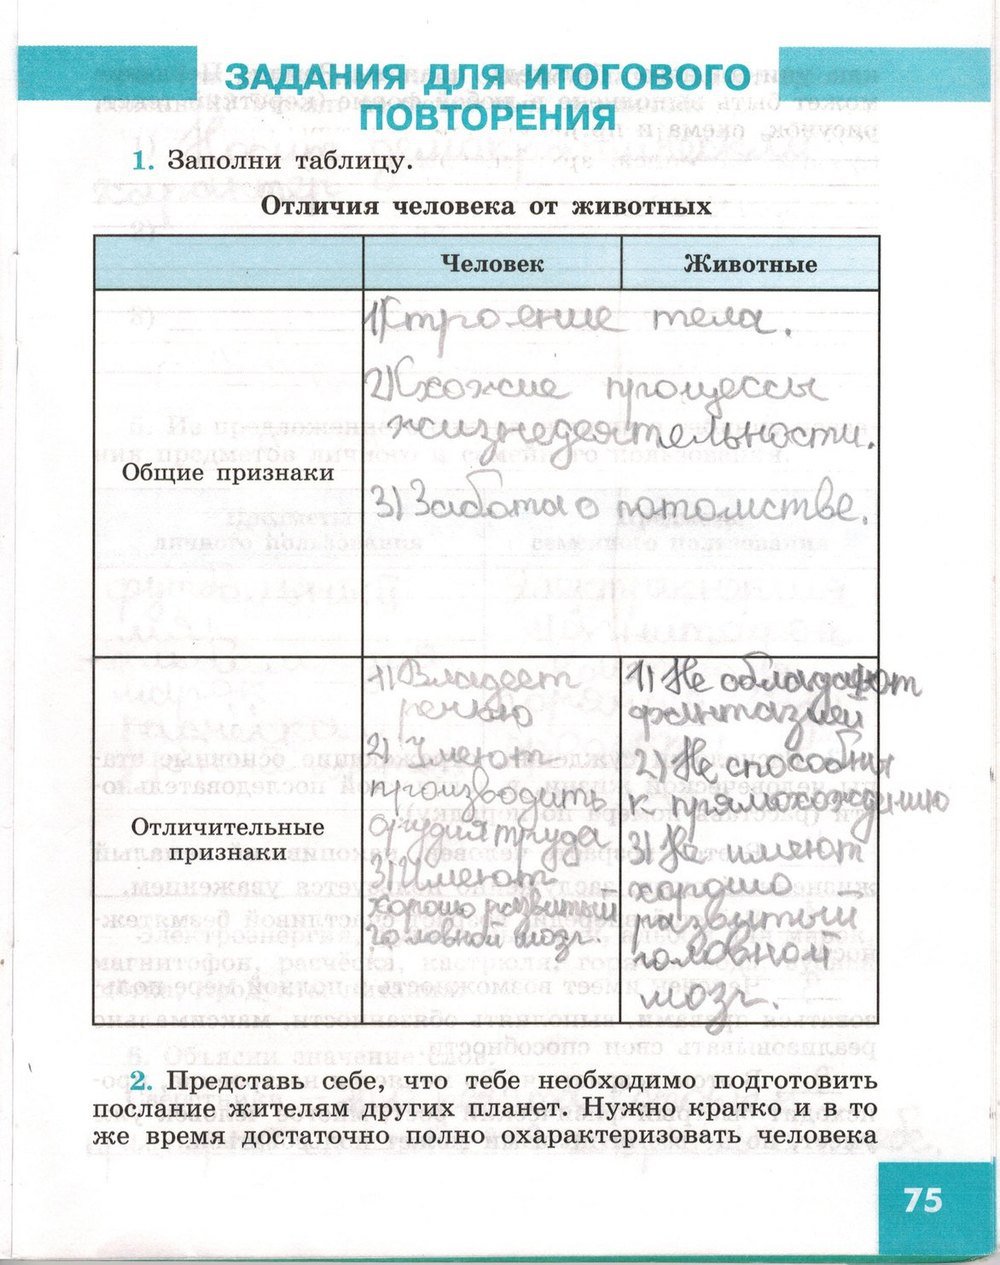 ЗАДАНИЯ ДЛЯ ИТОГОВОГО
ПОВТОРЕНИЯ
1. Заполни таблицу.
Отличия человека от животных
Человек
Животные
Общие признаки
1) Строение тела.
2) Схожие процессы
жизнедеятельности.
3) Забота о потомстве.
Отличительные
признаки
1) Владеет
речью
2) Имеют
производить
орудия труда
3) Имеют
хорошо развитый
головной мозг.
1) Не обладают
фантазией
2) Не способны
к прямохождению
3) Не имеют
хорошо
развитый
головной
мозг.
2. Представь себе, что тебе необходимо подготовить
послание жителям других планет. Нужно кратко и в то
же время достаточно полно охарактеризовать человека
75